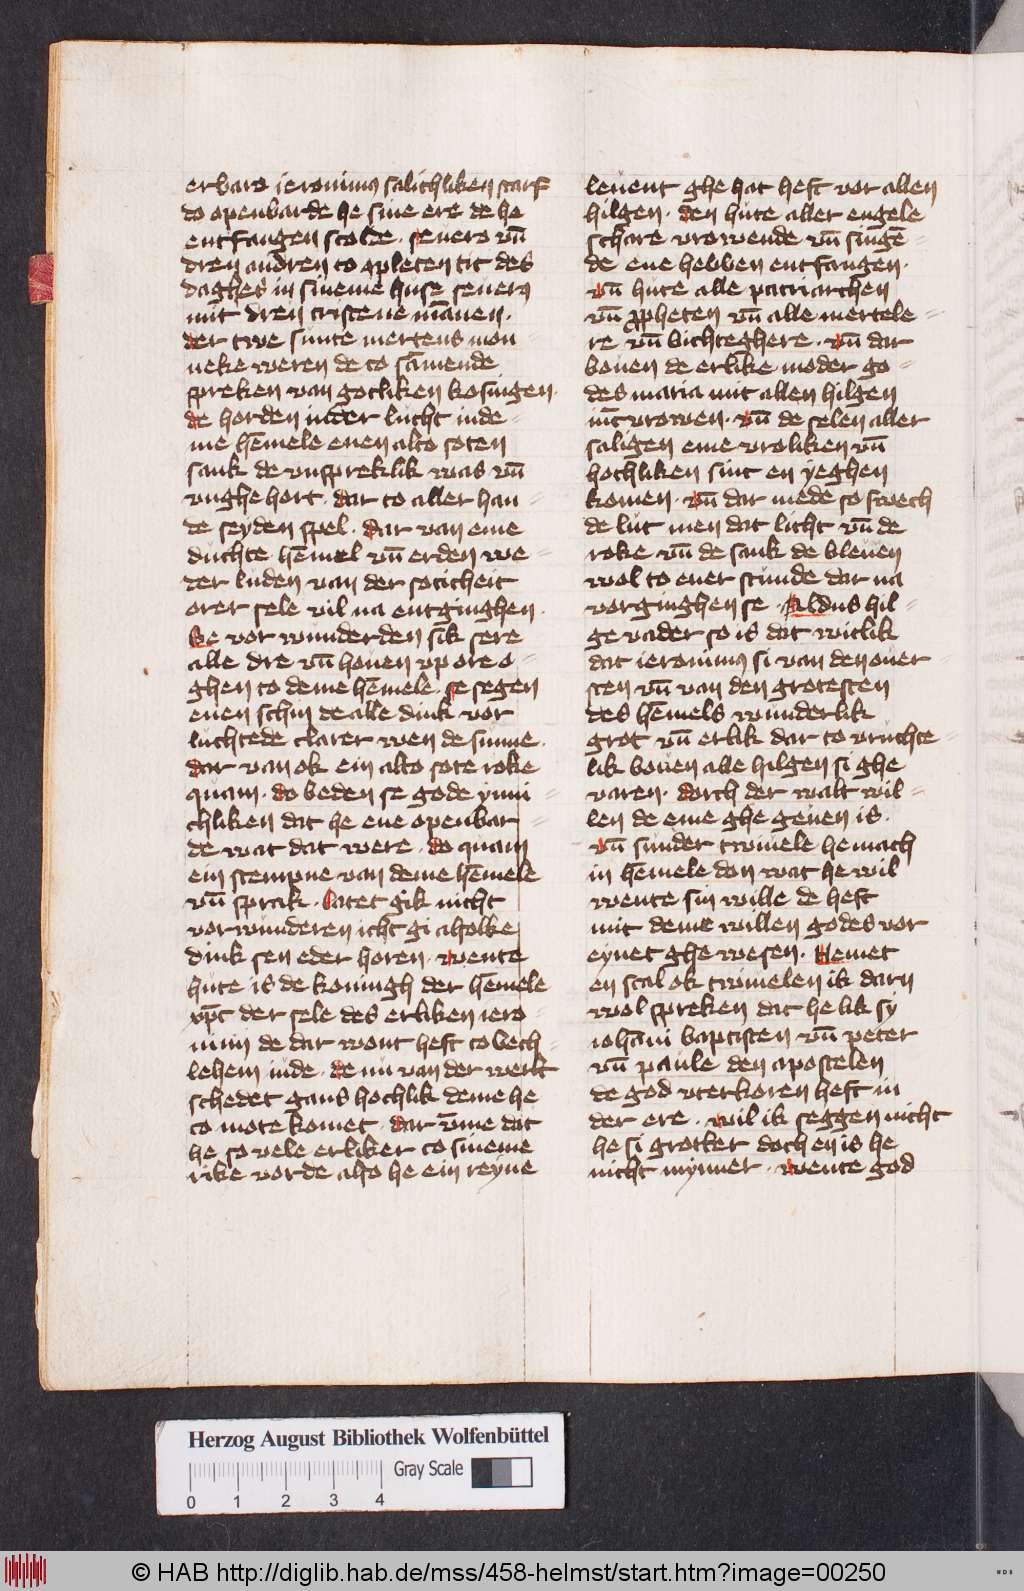 erbaro ieronimus salichliken starf
do openbarde he sine ere de he
entfangen scolde. seuero vn̄
dren andren to xpleten tit des
daghes in sineme huse seuerus
mit dren cristene mānen.
der twe sunte mertens mon=
neke weren de to sāmende
spreken van gotliken kosingen.
de horden inder lucht inde=
me hēmele enen alto soten
sank de vnspreklik was vn̄
vnghe hort. dar to aller han=
de seyden spel. dar van eme
duchte hēmel vn̄ erden we=
der luden van der soticheit
orer sele vil na entginghen.
Se vor wunderden sik sere
alle dre vn̄ houen vp ore o=
ghen to deme hēmele. se segen
enen schin de alle dink vor
luchtede clarer wen de sunne.
dar van ok ein alto sote roke
quam. do beden se gode ynni=
chliken dat he ene openbar=
de wat dat were. do quam
ein stempne van deme hēmele
vn̄ sprak. Latet gik nicht
vorwunderen icht gi alsolke
dink sen eder horen. wente
hute is de koningh der hēmele
xp̄c der sele des erliken iero=
nimi de dar wont heft to bech=
lehem inde. de nu van der werlt
schedet gans hochlik deme he
to mote komet. dar vm̄e dat
he so vele erliker to sineme
rike vorde also he ein reyne
leuent ghe hat heft vor allen
hilgen. den hute aller engele
schare vrowende vn̄ singē=
de ene hebben entfangen.
vn̄ hute alle patriarchen
vn̄ ꝓpheten vn̄ alle mertele=
re vn̄ bichteghere. vn̄ dar
bouen de erlike moder go=
des maria mit allen hilgen
iūcvrowen. vn̄ de selen aller
saligen eme vroliken vn̄
hochliken sint en yeghen
komen. vn̄ dar mede so swech
de lut men dat licht vn̄ de
roke vn̄ de sank de bleuen
wol to ener stunde dar na
vorginghen se. Aldus hil=
ge vader so is dat witlik
dat ieronimus si van den ouer=
sten vn̄ van den grotesten
des hēmels wunderlik
grot vn̄ erlik dar to vruchte=
lik bouen alle hilgen si ghe
varen. dorch der walt wil=
len de eme ghe geuen is.
vn̄ sunder twiuele he mach
in hēmele don wat he wil
wente sin wille de heft
mit deme willen godes vor
eynet ghe wesen. Nemet
en scal ok twiuelen ik darn
wol spreken dat he lik sy
iohāni baptisten vn̄ peter
vn̄ paule den apostelen
de god vterkoren heft in
der ere. wil ik seggen nicht
he si grotker doch en is he
nicht mynner. wente god
Herzog August Bibliothek Wolfenbüttel
Gray Scale
0 1 2 3 4
© HAB http://diglib.hab.de/mss/458-helmst/start.htm?image=00250